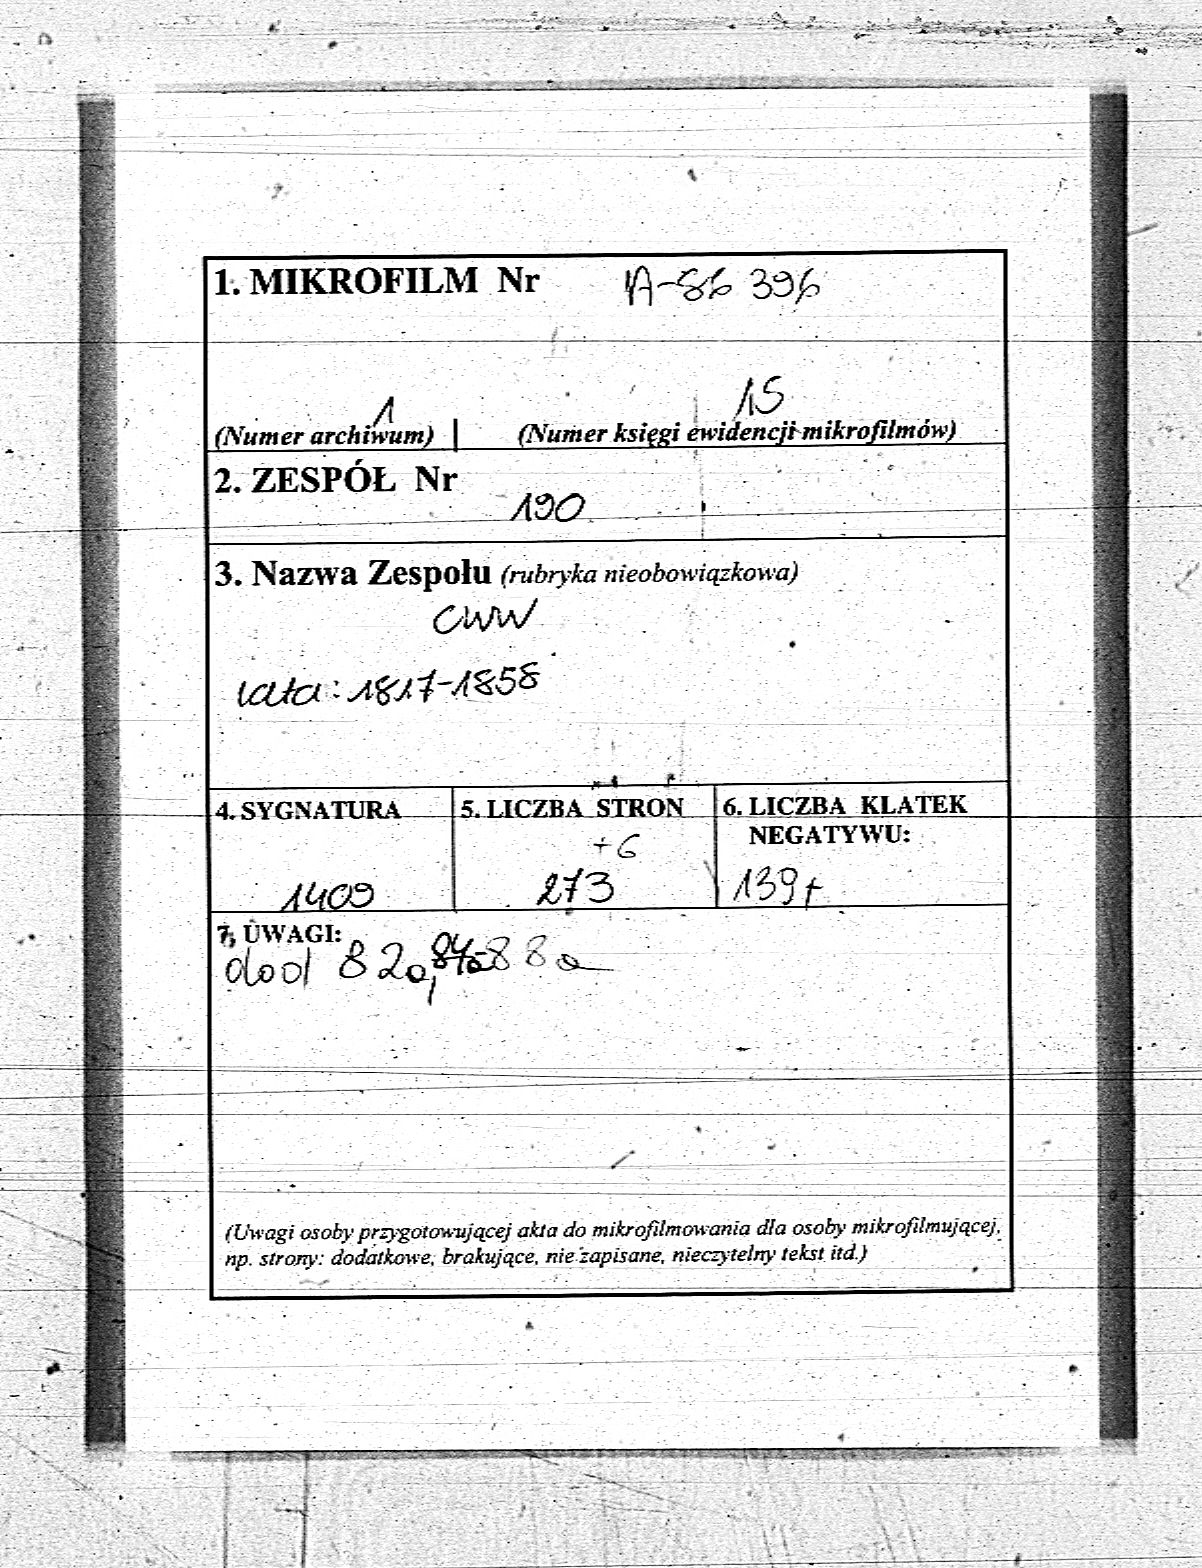 1. MIKROFILM Nr A-86 396
1 15
(Numer archiwum) (Numer księgi ewidencji mikrofilmów)
2. ZESPÓŁ Nr
190
3. Nazwa Zespołu (rubryka nieobowiązkowa)
CWW
lata: 1817-1858
4. SYGNATURA 5. LICZBA STRON 6. LICZBA KLATEK
NEGATYWU:
+6
1409 273 139+
7. UWAGI:
dod 82a, 88a
(Uwagi osoby przygotowującej akta do mikrofilmowania dla osoby mikrofilmującej,
np. strony: dodatkowe, brakujące, nie zapisane, nieczytelny tekst itd.)